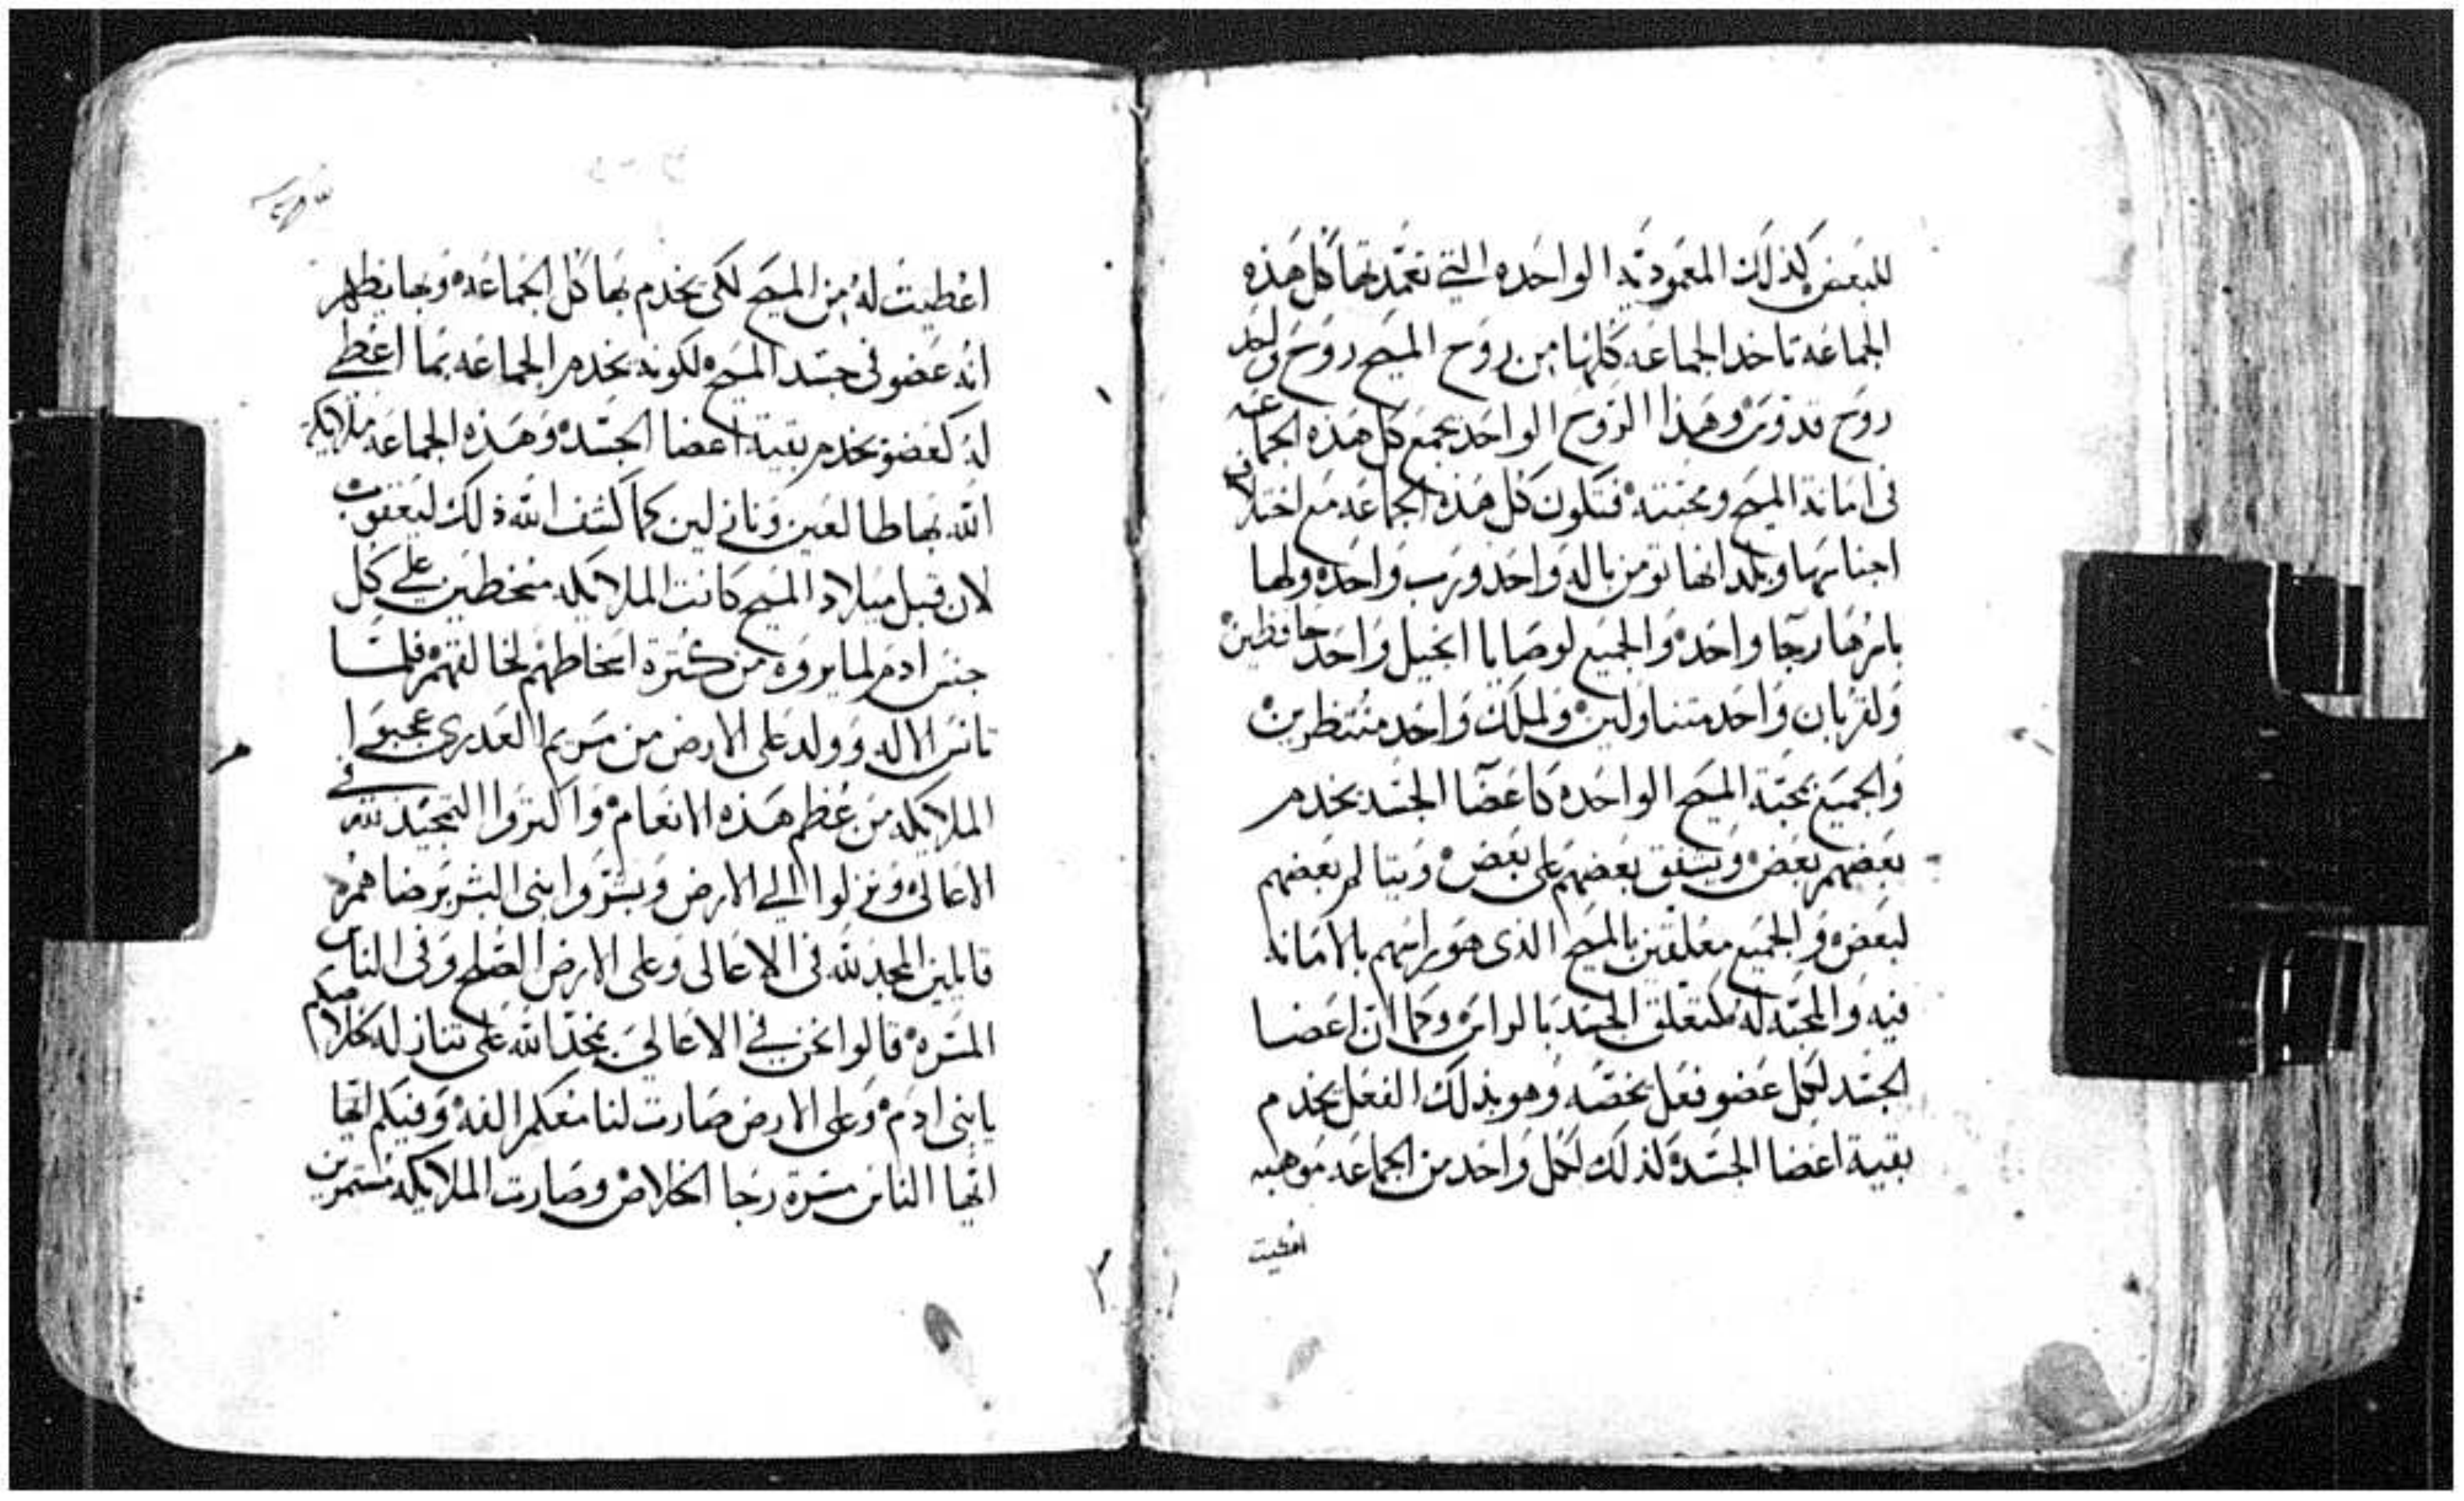 للبعض كذلك المعموديه الواحده التي تعمد بها كل هذه
الجماعه تاخد الجماعه كلها من روح المسيح روح واحد
روح قدوس وهذا الروح الواحد يجمع كل هذه الجماعه
فى امانة المسيح ومحبته فتكون كل هذه الجماعه مع اختلاف
اجناسها وبلدانها تومن باله واحد ورب واحد ولها
باسرها رجا واحد والجميع لوصايا انجيل واحد حافظين
ولقربان واحد متناولين ولملك واحد منتظرين
والجميع بمحبة المسيح الواحده كاعضا الجسد يخدم
بعضهم بعض ويشفق بعضهم على بعض ويتالم بعضهم
لبعض والجميع معلقين بالمسيح الذى هو راسهم بالامانه
فيه والمحبه له كتعلق الجسد بالراس وكما ان اعضا
الجسد لكل عضو فعل يخصه وهو بذلك الفعل يخدم
بقية اعضا الجسد كذلك لكل واحد من الجماعه موهبه
اعطيت
اعطيت له من المسيح لكى يخدم بها كل الجماعه وبها يظهر
انه عضو فى جسد المسيح لكونه يخدم الجماعه بما اعطى
له كعضو يخدم بقية اعضا الجسد وهذه الجماعه ملايكة
الله بها طالعين ونازلين كما كشف الله ذلك ليعقوب
لان قبل ميلاد المسيح كانت الملايكه متخطين على كل
جنس ادم لما يروه من كترة اسخاطهم لخالقهم فلما
تانس الاله وولد على الارض من مريم العدرى عجبوا
الملايكه من عظم هذه الانعام واكتروا التمجيد لله فى
الاعالى ونزلوا الي الارض وبشروا بنى البشر برضاهم
قايلين المجد لله فى الاعالى وعلى الارض الصلح وفى الناس
المسره قالوا نحن في الاعالي نمجد الله على تنازله لخلاصكم
يا بنى ادم وعلى الارض صارت لنا معكم الفه وفيكم ايها
ايها الناس مسرة رجا الخلاص وصارت الملايكه مستمرين